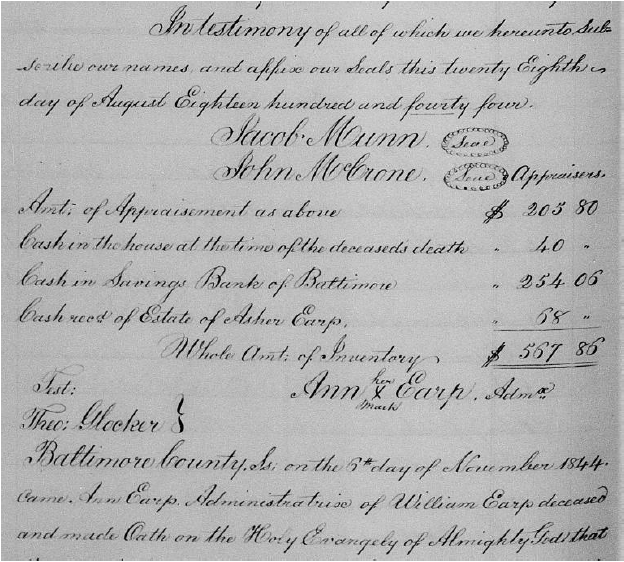 In testimony of all of which we hereunto Sub=
scribe our names, and affix our Seals this twenty Eighth
day of August Eighteen hundred and fourty four.
Jacob Munn. Seal
John McCrone. Seal Appraisers.
Amt: of Appraisement as above $ 205 80
Cash in the house at the time of the deceaseds death " 40 "
Cash in Savings Bank of Baltimore " 254 06
Cash recd of Estate of Asher Earp. " 68 "
Whole Amt: of Inventory $ 567 86
Ann her X mark Earp. Admx.
Test:
Theo: Glocker }
Baltimore County, Ss: on the 6th day of November 1844.
came. Ann Earp. Administratrix of William Earp deceased
and made Oath on the Holy Evangely of Almighty God: that